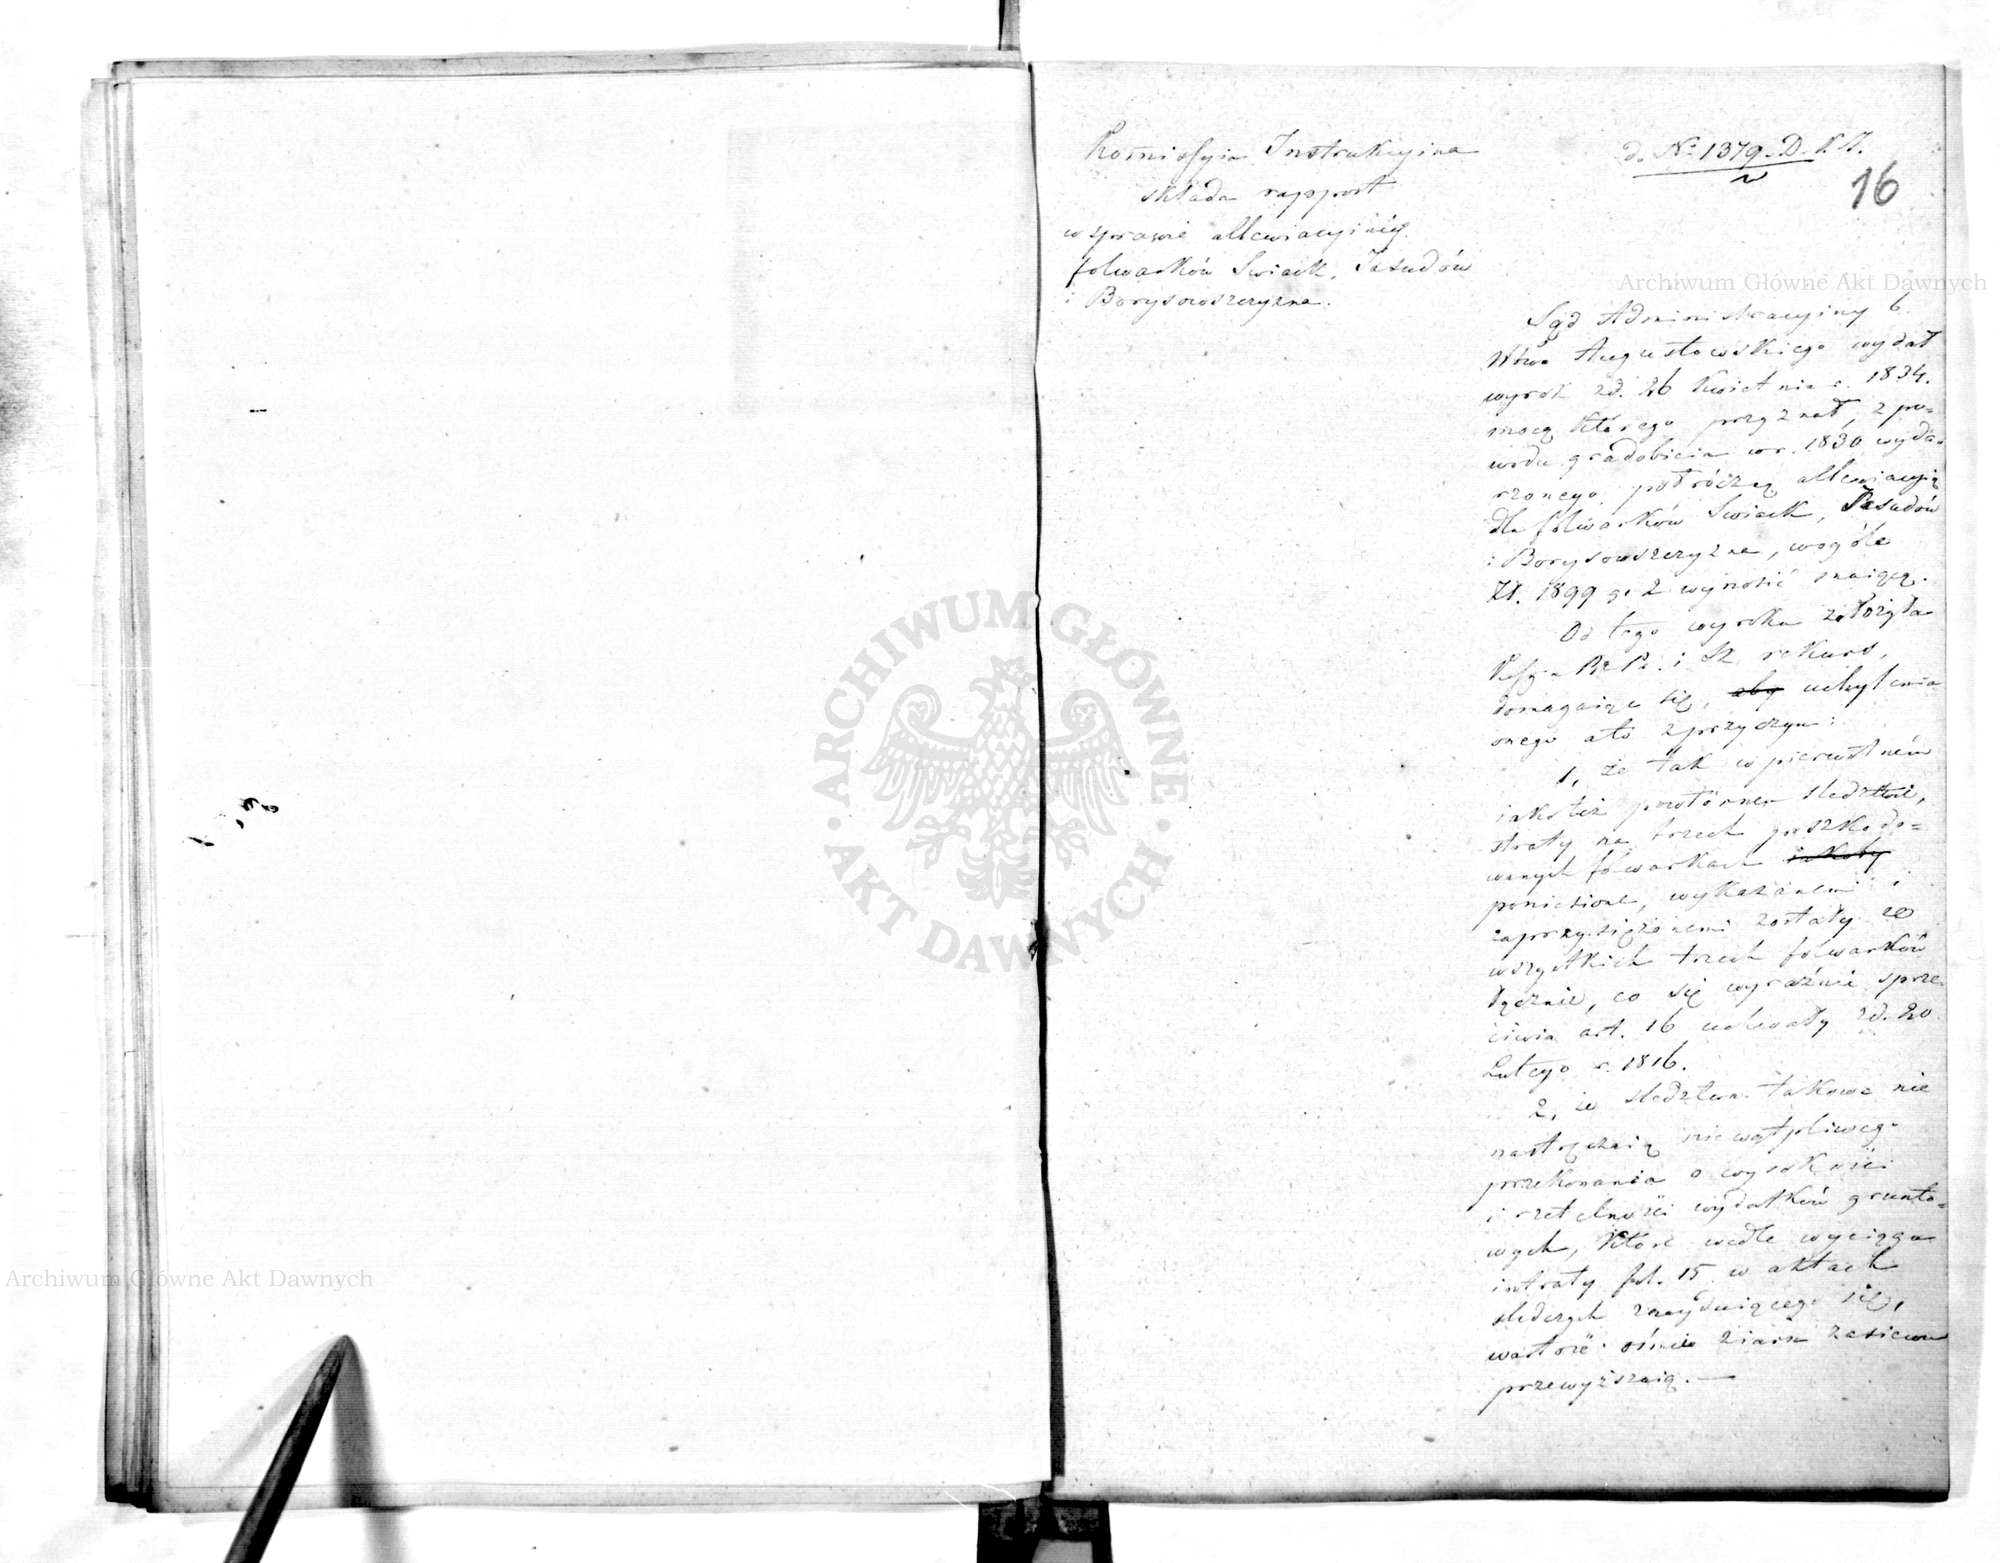 Komissyia Instrukcyina
składa rapport
w sprawie allewiacyinéy
folwarków Swiack, Jasudów
i Borysowszczyzna.
d. No 1379. D. K. J.
16
Archiwum Główne Akt Dawnych
Sąd Administracyiny b.
Wdwa Augustowskiego wydał
wyrok z d. 26 Kwietnia r. 1834.
mocą którego przyznał, z po=
wodu gradobicia w r. 1830 wyda=
rzonego, półróczną allewiacyią
dla folwarków Swiack, Jasudów
i Borysowszczyzna, wogóle
Zł. 1899 g. 2 wynosić maiącą.
Od tego wyroku założyła
Kssya Rz. P. i Sk. rekurs,
domagaiąc się, aby uchylenia
onego a to z przyczyn:
1, że tak w pierwotném
iakoteż powtórnem sledztwie,
straty na trzech poszkodo=
wanych folwarkach iakoby
poniesione, wykazanemi i
zaprzysiężonemi zostały ze
wszystkich trzech folwarków
łącznie, co się wyraźnie sprze=
ciwia art. 16 uchwały z d. 20
Lutego r. 1816.
2, że sledztwa takowe nie
nastręczaią niewątpliwego
przekonania o wysokości
i rzetelności wydatków grunto=
wych, które wedle wyciągu
intraty fol. 15 w aktach
sledczych znayduiącego się,
wartość ośmiu ziarn zasiewu
przewyższaią. —
ARCHIWUM GŁÓWNE
AKT DAWNYCH
Archiwum Główne Akt Dawnych